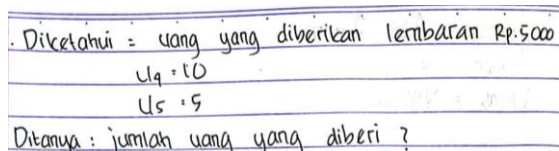 . Diketahui = uang yang diberikan lembaran Rp.5000
U4 = 10
U5 = 5
Ditanya : jumlah uang yang diberi ?